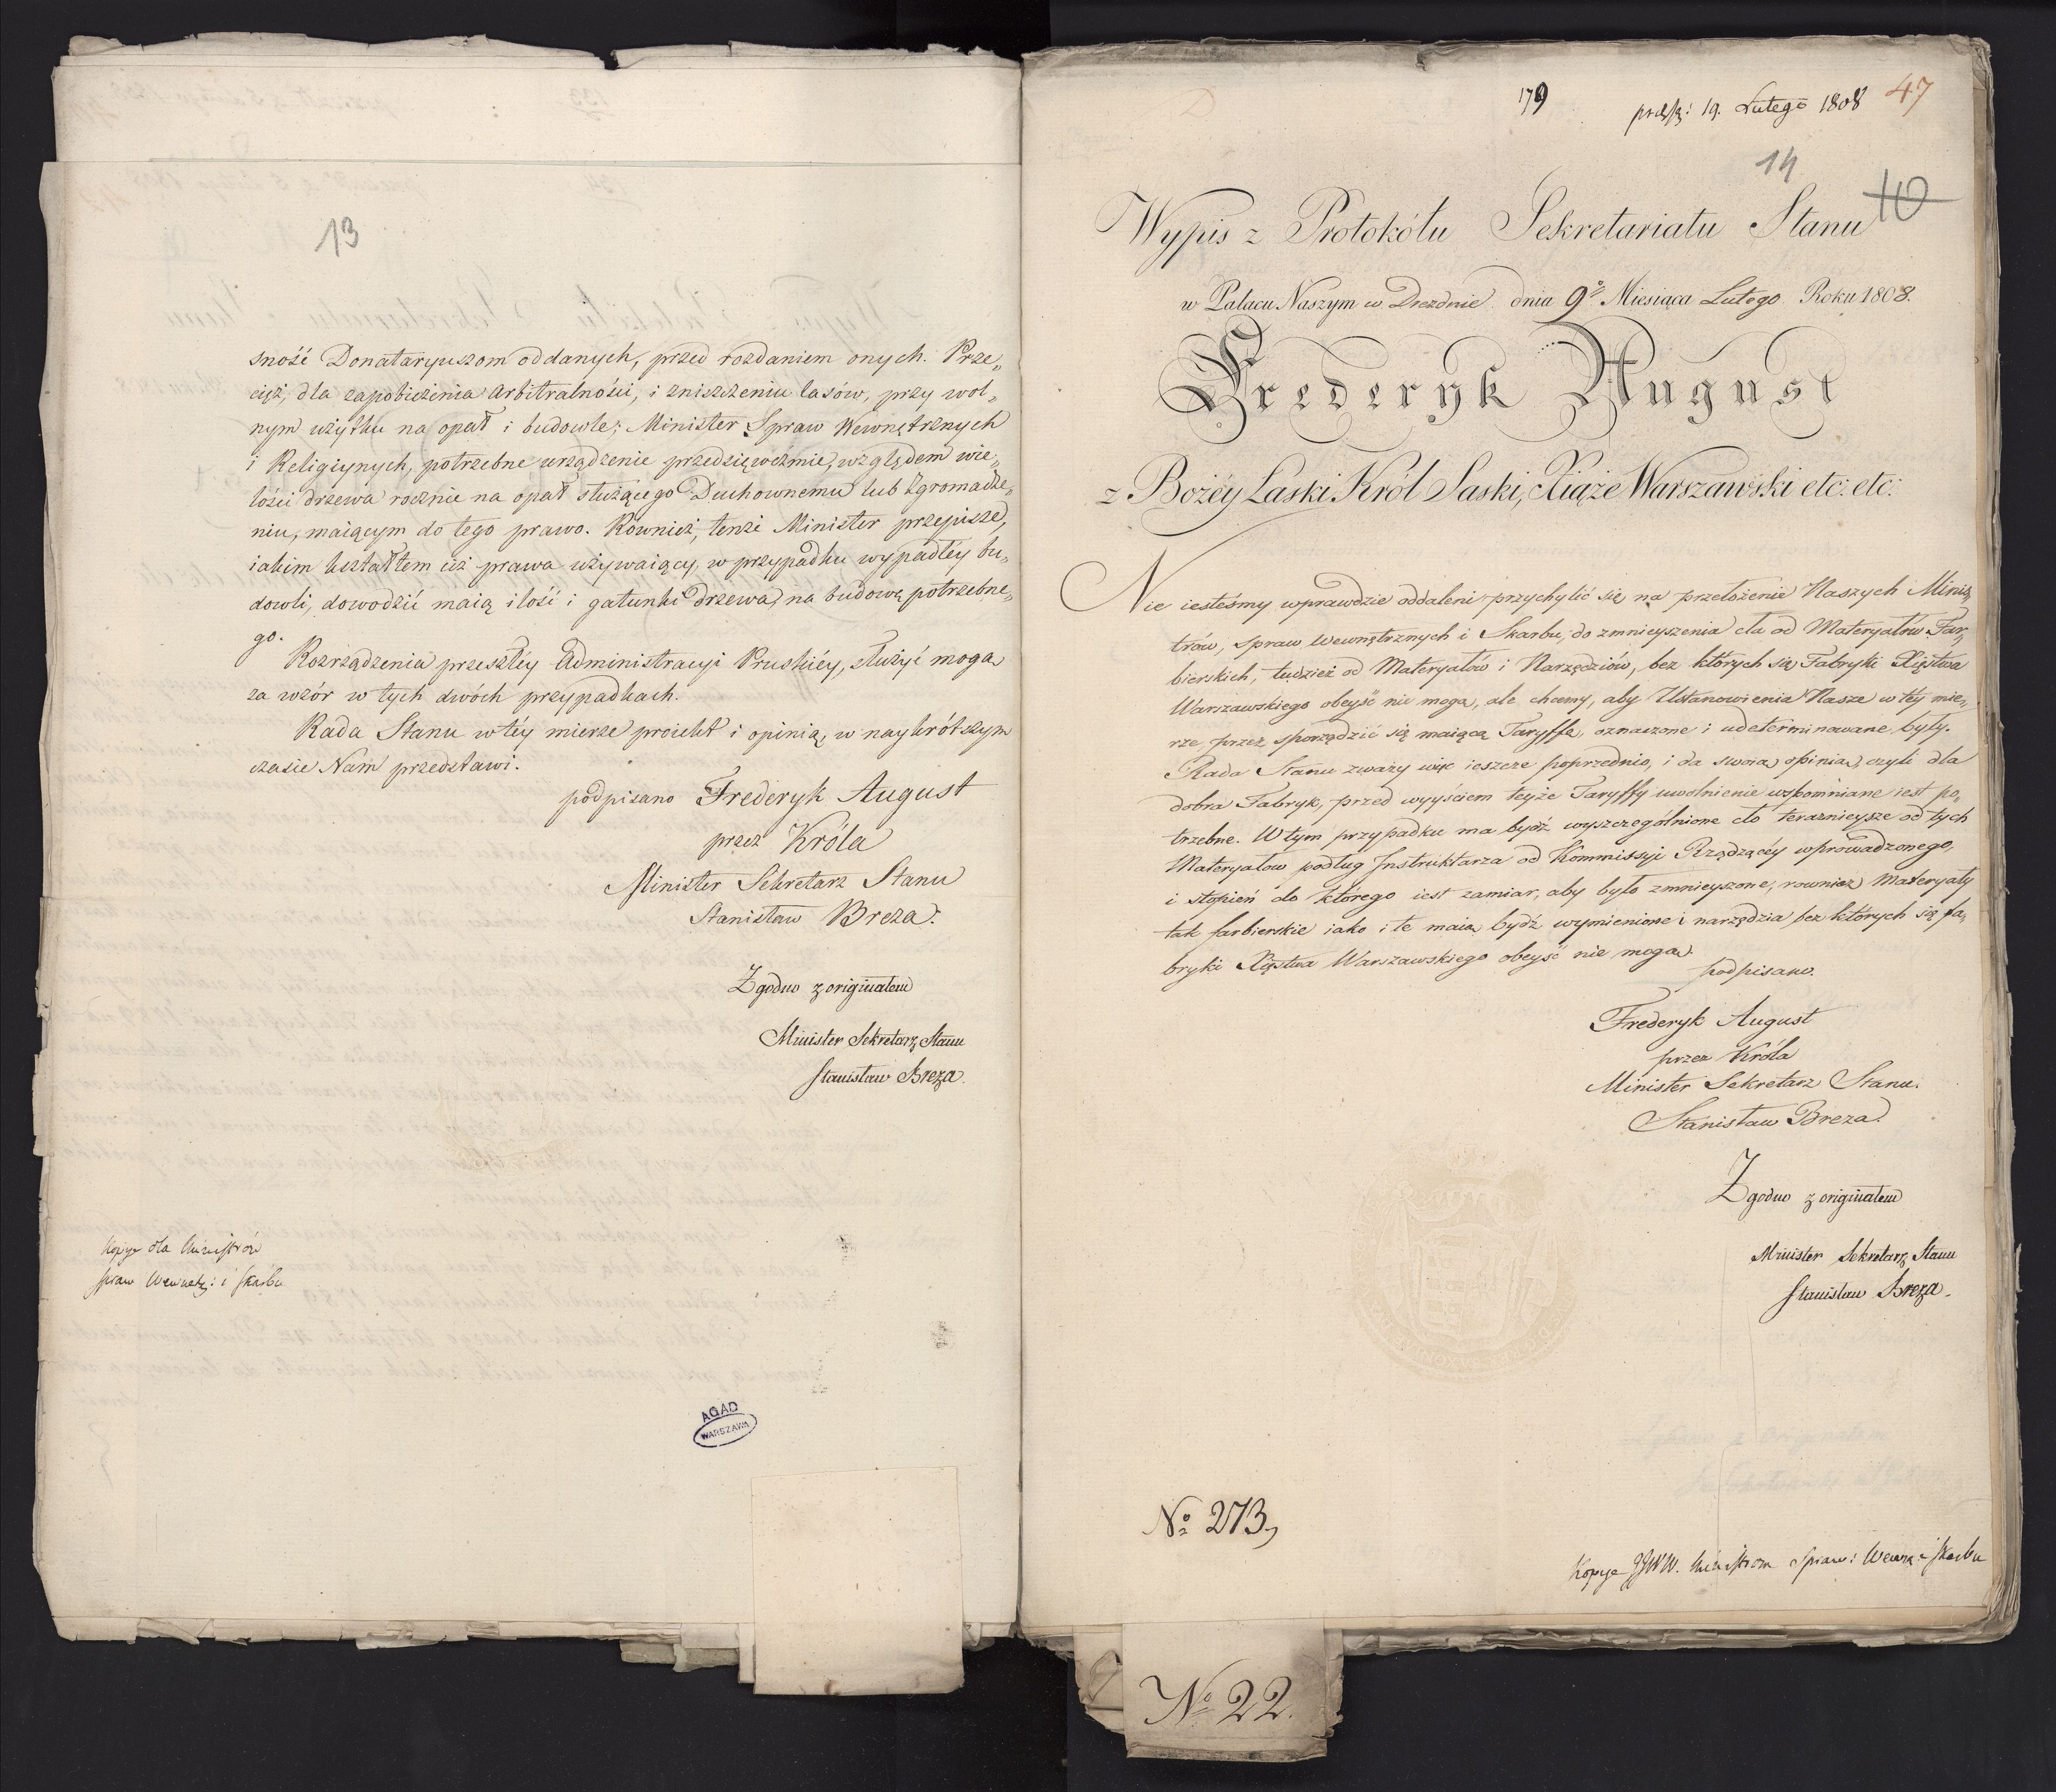 13
sność Donataryuszom oddanych, przed rozdaniem onych. Prze„
cięż, dla zapobieżenia arbitralności, i zniszczeniu lasów, przy wol„
nym użytku na opał i budowle; Minister Spraw Wewnętrznych
i Religiynych, potrzebne urządzenie przedsięwezmie, względem wie„
lości drzewa rocznie na opał służącego Duchownemu lub Zgromadze„
niu, maiącym do tego prawo. Również, tenże Minister przepisze,
iakim kształtem ciż prawa używaiący, w przypadku wypadłéy bu„
dowli, dowodzić maią ilość i gatunki drzewa, na budowę potrzebne„
go.
Rozrządzenia przeszłéy Administracyi Pruskiéy, służyć mogą
za wzór w tych dwóch przypadkach.
Rada Stanu w téy mierze proiekt i opinią, w naykrótszym
czasie Nam przedstawi.
podpisano Frederyk August
przez Króla
Minister Sekretarz Stanu
Stanisław Breza.
Zgodno z originałem
Minister Sekretarz Stanu
Stanisław Breza.
Kopye dla Ministrów
spraw Wewnętrz: i Skarbu
AGAD
WARSZAWA
179
47
19. Lutego 1808
14
10
Wypis z Protokółu Sekretariatu Stanu
w Pałacu Naszym w Dreznie dnia 9º Miesiąca Lutego Roku 1808.
Frederyk August
z Bożéy Łaski Król Saski, Xiąże Warszawski etc: etc:
Nie iesteśmy wprawdzie oddaleni przychylić się na przełożenie Naszych Minis„
trów, Spraw Wewnętrznych i Skarbu, do zmnieyszenia cła od Materyałów Far„
bierskich, tudzież od Materyałów i Narzędziów, bez których się Fabryki Xięstwa
Warszawskiego obeyść nie mogą, ale chcemy, aby Ustanowienia Nasze w téy mie„
rze, przez sporządzić się maiącą Taryffę, oznaczone i udeterminowane były.
Rada Stanu zważy więc ieszcze poprzednio, i da swoią opinią, czyli dla
dobra Fabryk, przed wyyściem teyże Taryffy uwolnienie wspomniane iest po„
trzebne. W tym przypadku ma bydź wyszczególnione cło teraznieysze od tych
Materyałów podług Instruktarza od Kommissyi Rządzącéy wprowadzonego,
i stopień do którego iest zamiar, aby było zmnieyszone, rownież Materyały
tak farbierskie iako i te maią bydź wymienione i narzędzia bez których się fa„
bryki Xięstwa Warszawskiego obeyść nie mogą.
podpisano.
Frederyk August
przez Króla
Minister Sekretarz Stanu.
Stanisław Breza.
Zgodno z originałem
Minister Sekretarz Stanu
Stanisław Breza.
Nº 273,
Kopye JJWW. Ministrom Spraw: Wewnę: i Skarbu
Nº 22.